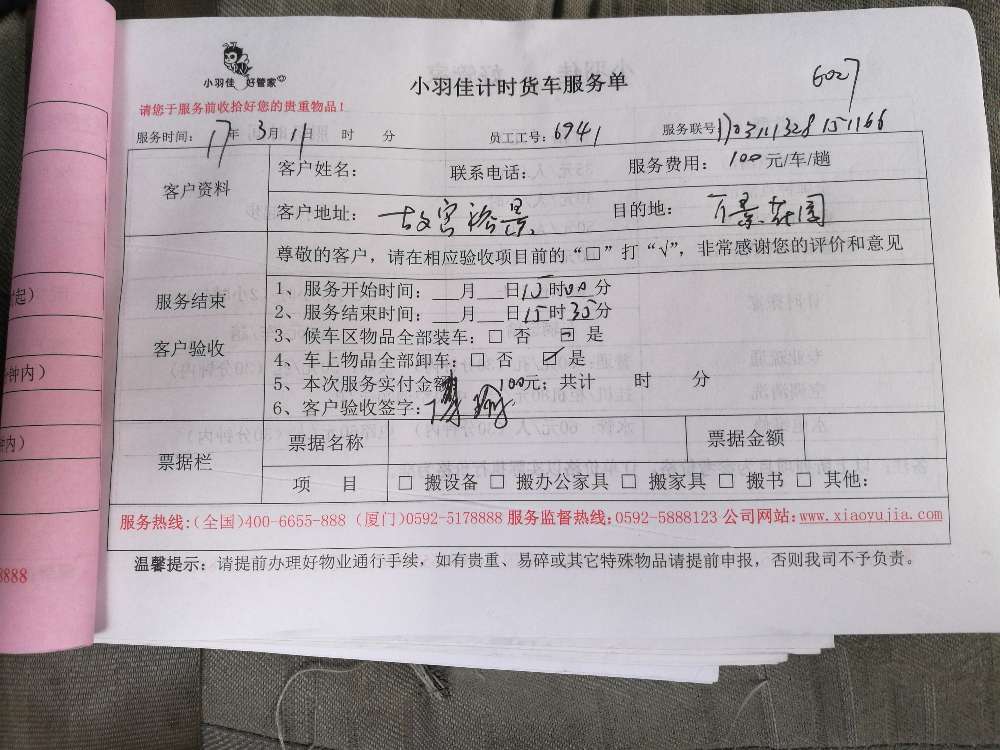 小羽佳 好管家
小羽佳计时货车服务单
6027
请您于服务前收拾好您的贵重物品！
服务时间： 17 年 3 月 11 日 时 分 员工工号：6941 服务联号
客户资料
客户姓名： 联系电话： 服务费用： 100 元/车/趟
客户地址： 故宫裕景 目的地： 万景花园
服务结束
客户验收
尊敬的客户，请在相应验收项目前的“□”打“√”，非常感谢您的评价和意见
1、服务开始时间：___月___日15时00分
2、服务结束时间：___月___日15时35分
3、候车区物品全部装车：□ 否 ☑ 是
4、车上物品全部卸车：□ 否 ☑ 是
5、本次服务实付金额 100元；共计 时 分
6、客户验收签字：
票据栏
票据名称 票据金额
项 目 □ 搬设备 □ 搬办公家具 □ 搬家具 □ 搬书 □ 其他：
服务热线:(全国)400-6655-888 (厦门)0592-5178888 服务监督热线:0592-5888123 公司网站:www.xiaoyujia.com
温馨提示：请提前办理好物业通行手续，如有贵重、易碎或其它特殊物品请提前申报，否则我司不予负责。
起）
钟内）
内）
8888